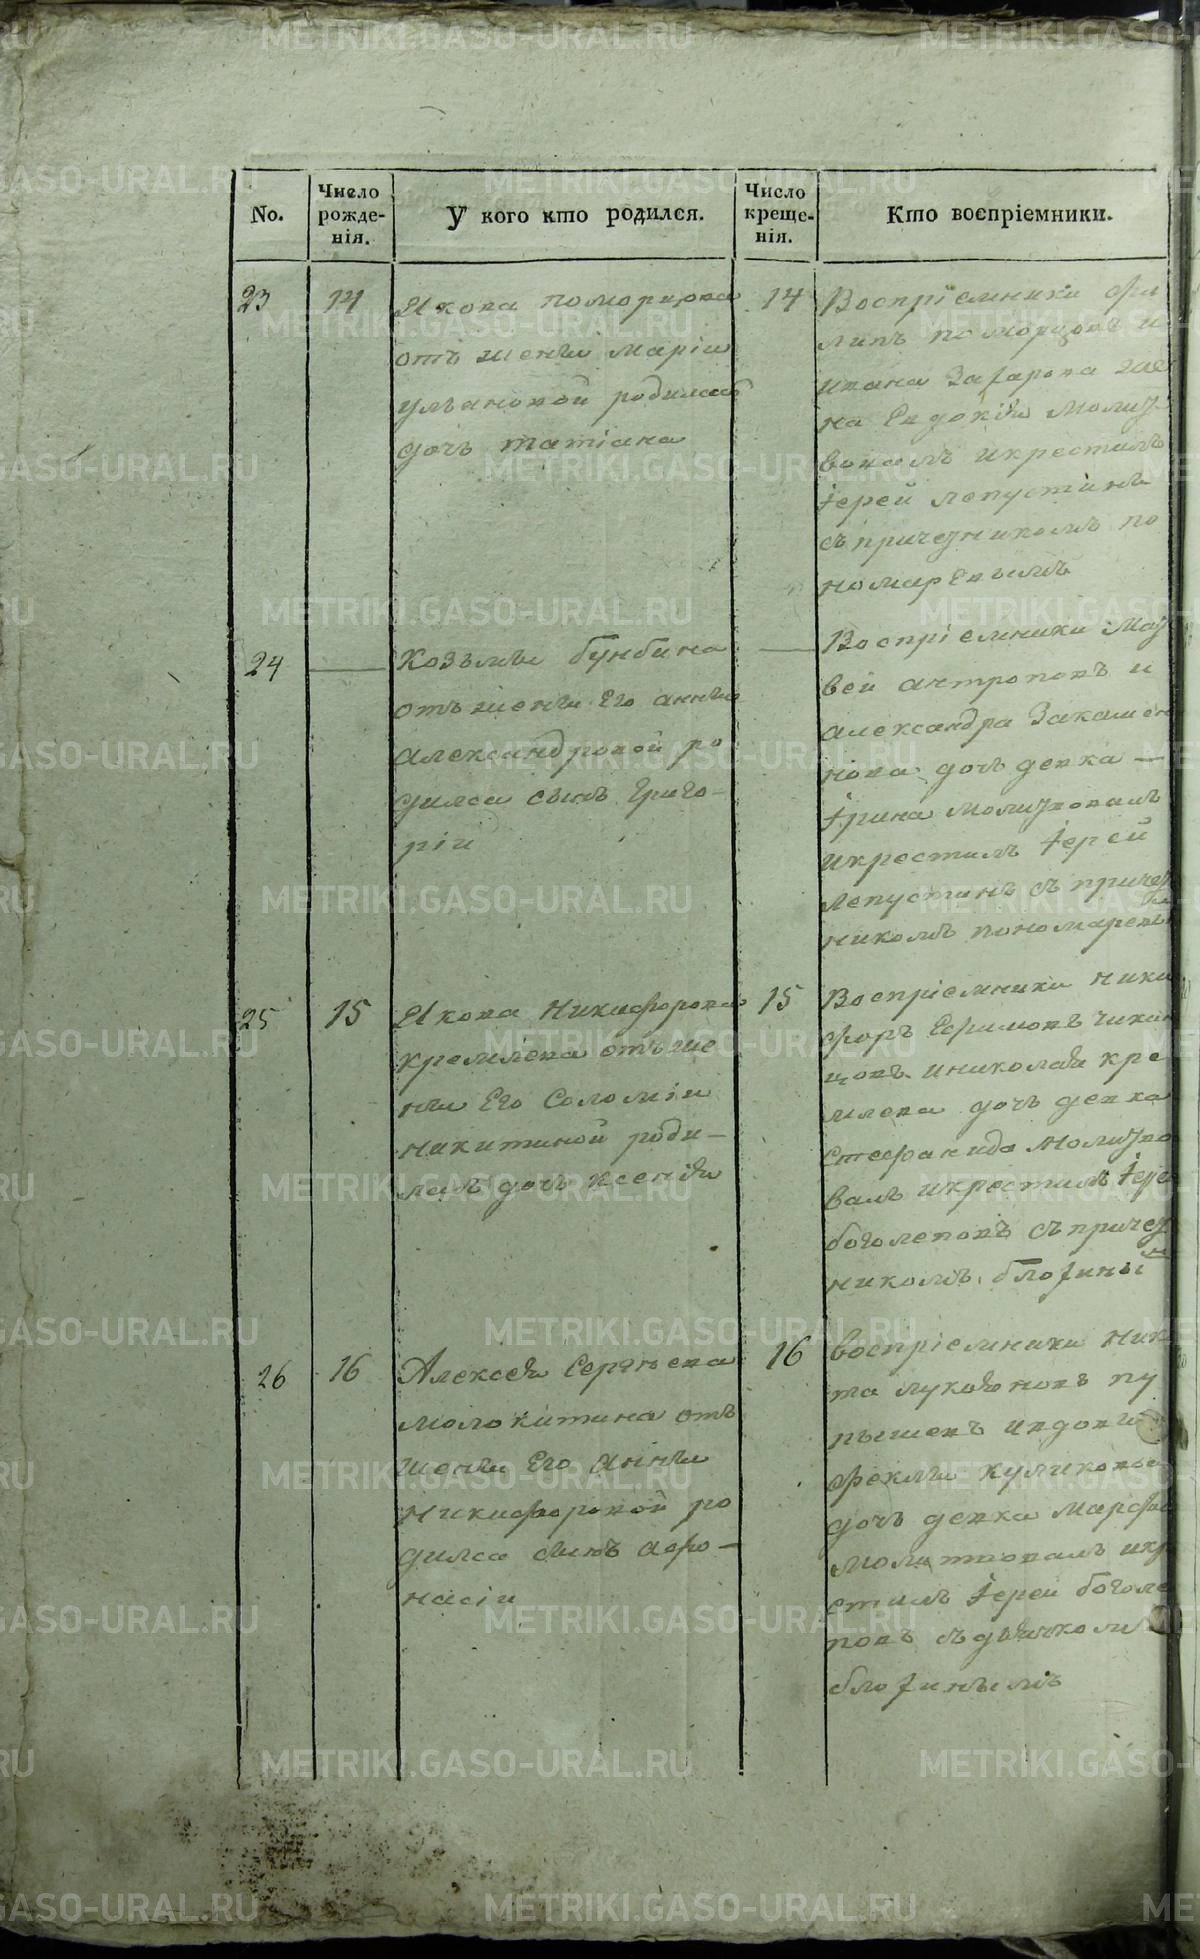 No.
Число рожде- нія.
У кого кто родился.
Число креще- нія.
Кто воспріемники.
23
14
Якова поморцова
отъ жены маріи
ульяновой родилась
дочь татіана
14
Воспріемники фи
липъ поморцовъ и
ивана Захарова же
на Евдокія молит
вовалъ икрестилъ
іерей лепустинъ
съ причетникомъ по
номаревымъ
24
Козьмы бунбина
отъ жены Его анны
александровой ро
дился сынъ григо-
рій
Воспріемники мат
вей антроповъ и
александра
нова дочь девка —
Ірина молитвовалъ
икрестилъ Іерей
лепустинъ съ причет
никомъ пономаревы
25
15
Якова Никифорова
кремлева отъ же
ны Его Соломіи
никитиной роди-
лась дочь ксенія
15
Воспріемники ники
форъ Ефимовъ чикан
цовъ иниколая кре
млева дочь девка
Стефанида молитво
валъ икрестилъ Іере
боголеповъ съ причет
никомъ блохины
м
26
16
Алексея Сергеева
молокитина отъ
жены Его анны
Никифоровой ро
дился сынъ афо-
насіи
16
воспріемники ник
та лукояновъ пу
пышевъ ивдовы
феклы куликовой
дочь девка марфа
молитвовалъ икр
стилъ Іерей боголе
повъ съ дьячкомъ
блохинымъ
METRIKI.GASO-URAL.RU